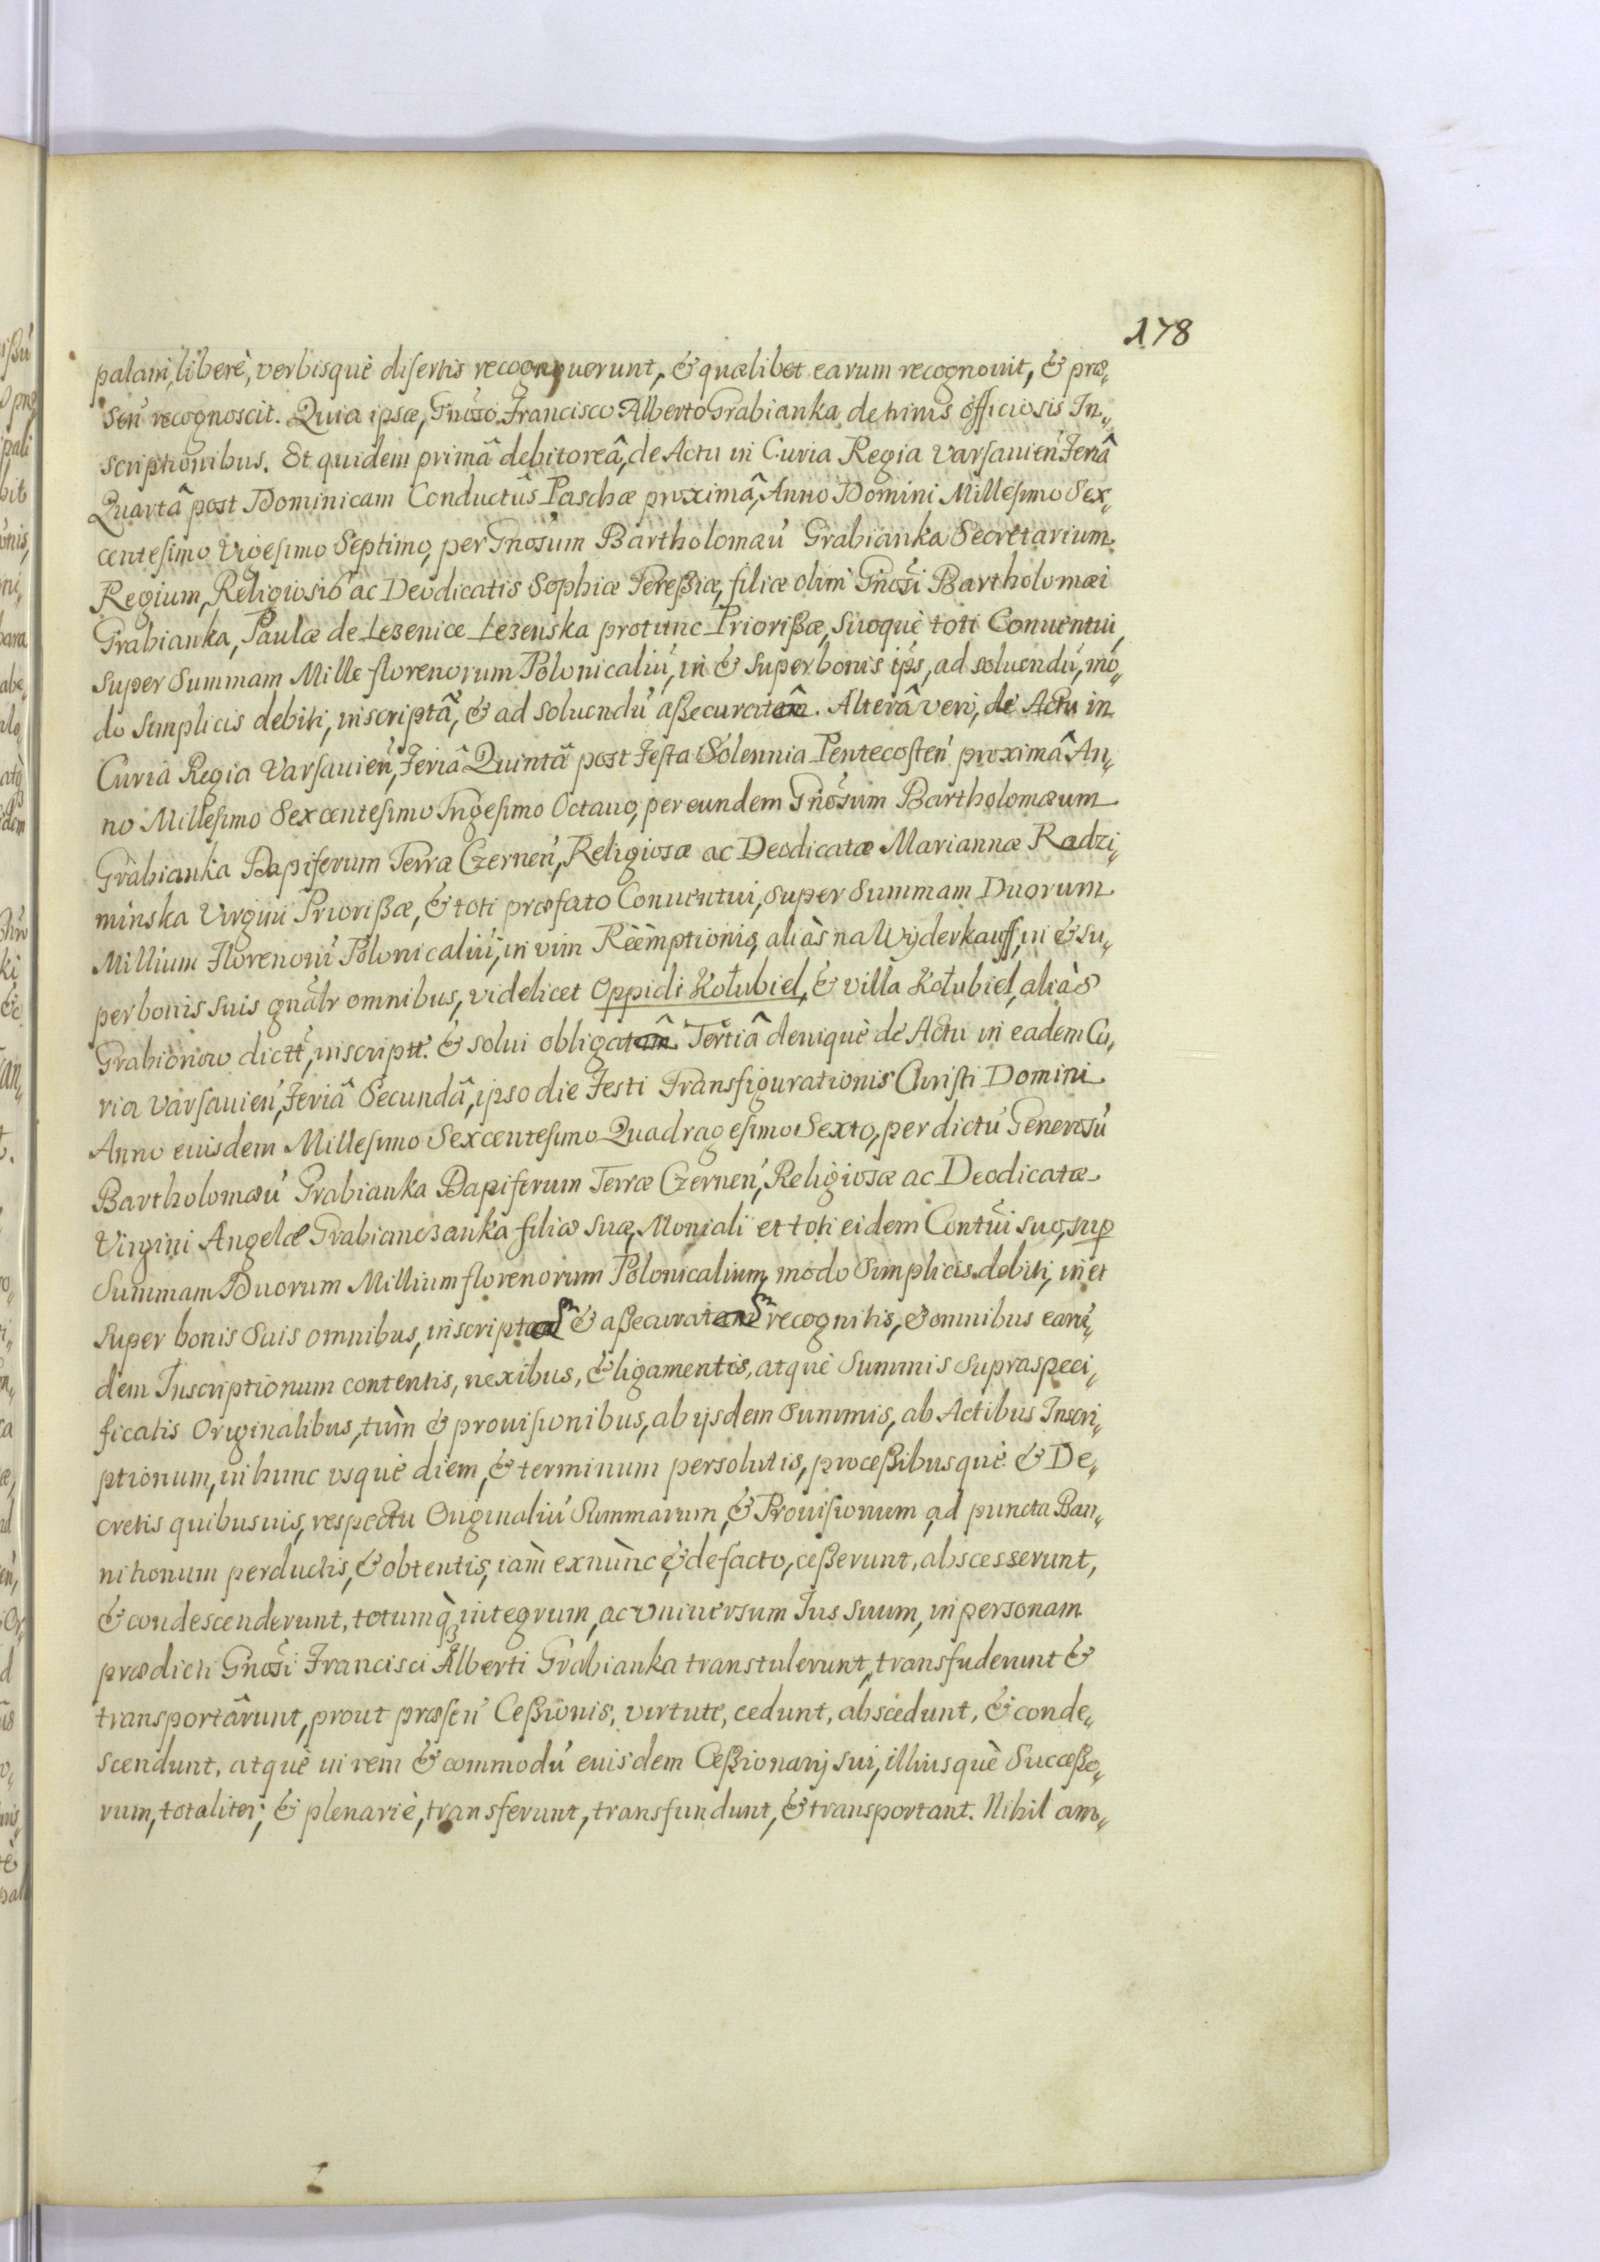 178
palam, liberè, verbisquè disertis recognouerunt, & quælibet earum recognouit, & præ„
sen̄ recognoscit. Quia ipsæ, Gnōso Francisco Alberto Grabianka de trinis officiosis In„
scriptionibus. Et quidem primâ debitoreâ, de Actu in Curia Regia Varsauien̄ Feriâ
Quartâ post Dominicam Conductûs Paschæ proximâ, Anno Domini Millesimo Sex„
centesimo Vigesimo Septimo, per Gnōsum Bartholomæū Grabianka Secretarium
Regium, Religiosis ac Deodicatis Sophiæ Tereßiæ, filiæ olim Gnōsi Bartholomæi
Grabianka, Paulæ de Lezenice Lezenska protunc Priorißæ, suoquè toti Conuentui,
super Summam Mille florenorum Polonicaliū, in & super bonis ip̄s, ad soluendū, mo„
do simplicis debiti, inscriptâ, & ad soluendū aßecuratâ. Alterâ verò, de Actu in
Curia Regia Varsauien̄, Feriâ Quintâ post Festa Solennia Pentecosten̄ proximâ An„
no Millesimo Sexcentesimo Trigesimo Octauo, per eundem Gnōsum Bartholomæum
Grabianka Dapiferum Terræ Czernen̄, Religiosæ ac Deodicatæ Mariannæ Radzi„
minska Virgini Priorißæ, & toti præfato Conuentui, super Summam Duorum
Millium Florenorū Polonicaliū, in vim Rèèmptionis, aliàs na Wÿderkauff, in & su„
per bonis suis gnālr omnibus, videlicet Oppidi Kołubiel, & villa Kołubiel, aliàs
Grabionow dictt̄, inscriptt. & solui obligatâ Tertiâ deniquè de Actu in eadem Cu„
ria Varsauien̄, Feriâ Secundâ, ipso die Festi Transfigurationis Christi Domini
Anno eiusdem Millesimo Sexcentesimo Quadragesimo Sexto, per dictū Generosū
Bartholomæū Grabianka Dapiferum Terræ Czernen̄, Religiosæ ac Deodicatæ
Virgini Angelæ Grabianczanka filiæ suæ, Moniali et toti eidem Contūi suo, sup
Summam Duorum Millium florenorum Polonicalium, modo Simplicis debiti, in et
super bonis suis omnibus, inscript & aßecurat recognitis, & omnibus earū„
dem Inscriptionum contentis, nexibus, & ligamentis, atquè Summis supraspeci„
ficatis Originalibus, tùm & prouisionibus, ab ijsdem Summis, ab Actibus Inscri„
ptionum, in hunc vsquè diem, & terminum persolutis, proceßibusquè & De„
cretis quibusuis, respectu Originaliū Summarum, & Prouisionum ad puncta Ban„
nitionum perductis, & obtentis, iàm exnùnc & defacto, ceßerunt, abscesserunt,
& condescenderunt, totumq́ integrum, ac vniuersum Jus suum, in personam
prædicti Gnōsi Francisci Alberti Grabianka transtulerunt, transfuderunt &
transportârunt, prout præsen̄ Ceßionis, virtute, cedunt, abscedunt, & conde„
scendunt, atquè in rem & commodū eiusdem Ceßionarij sui, illiusquè Succeßo„
rum, totaliter, & plenariè, transferunt, transfundunt, & transportant. Nihil am„